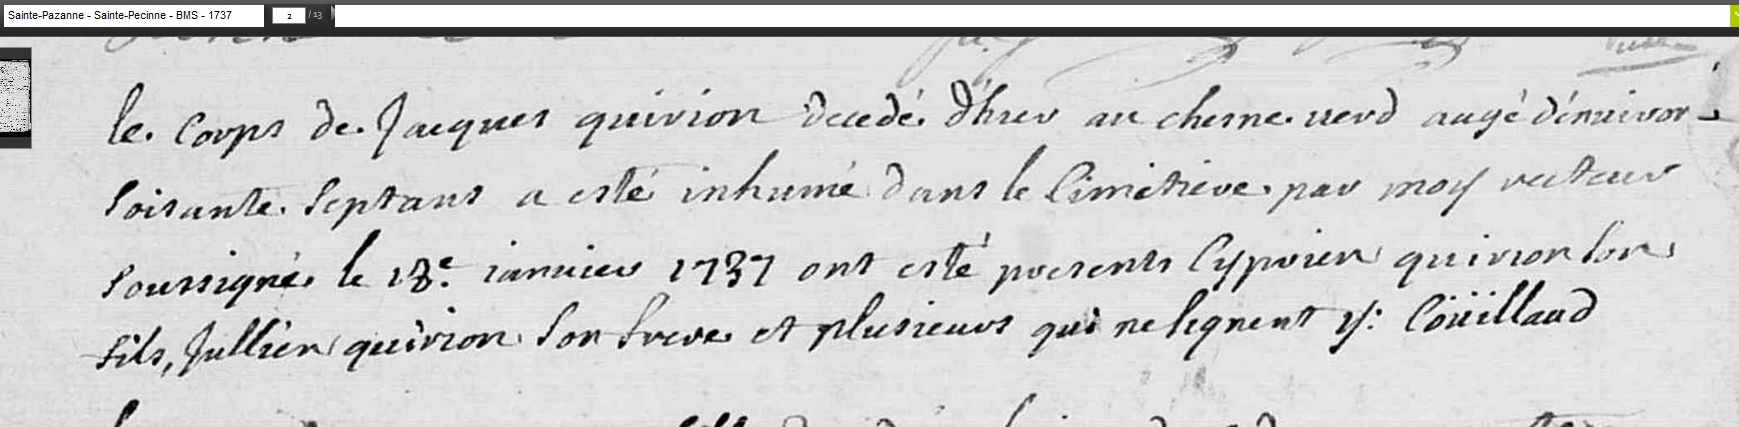 Sainte-Pazanne - Sainte-Pecinne - BMS - 1737
2 / 13
le corps de Jacques quirion decedé d'hier au chesne verd aagé d'enuiron
soisante septans a esté inhumé dans le cimetiere par moy recteur
soussigné le 18.e ianuier 1737 ont esté presents Cyprien quirion son
fils, Jullien quirion son frere et plusieurs qui ne signent y: Coüillaud